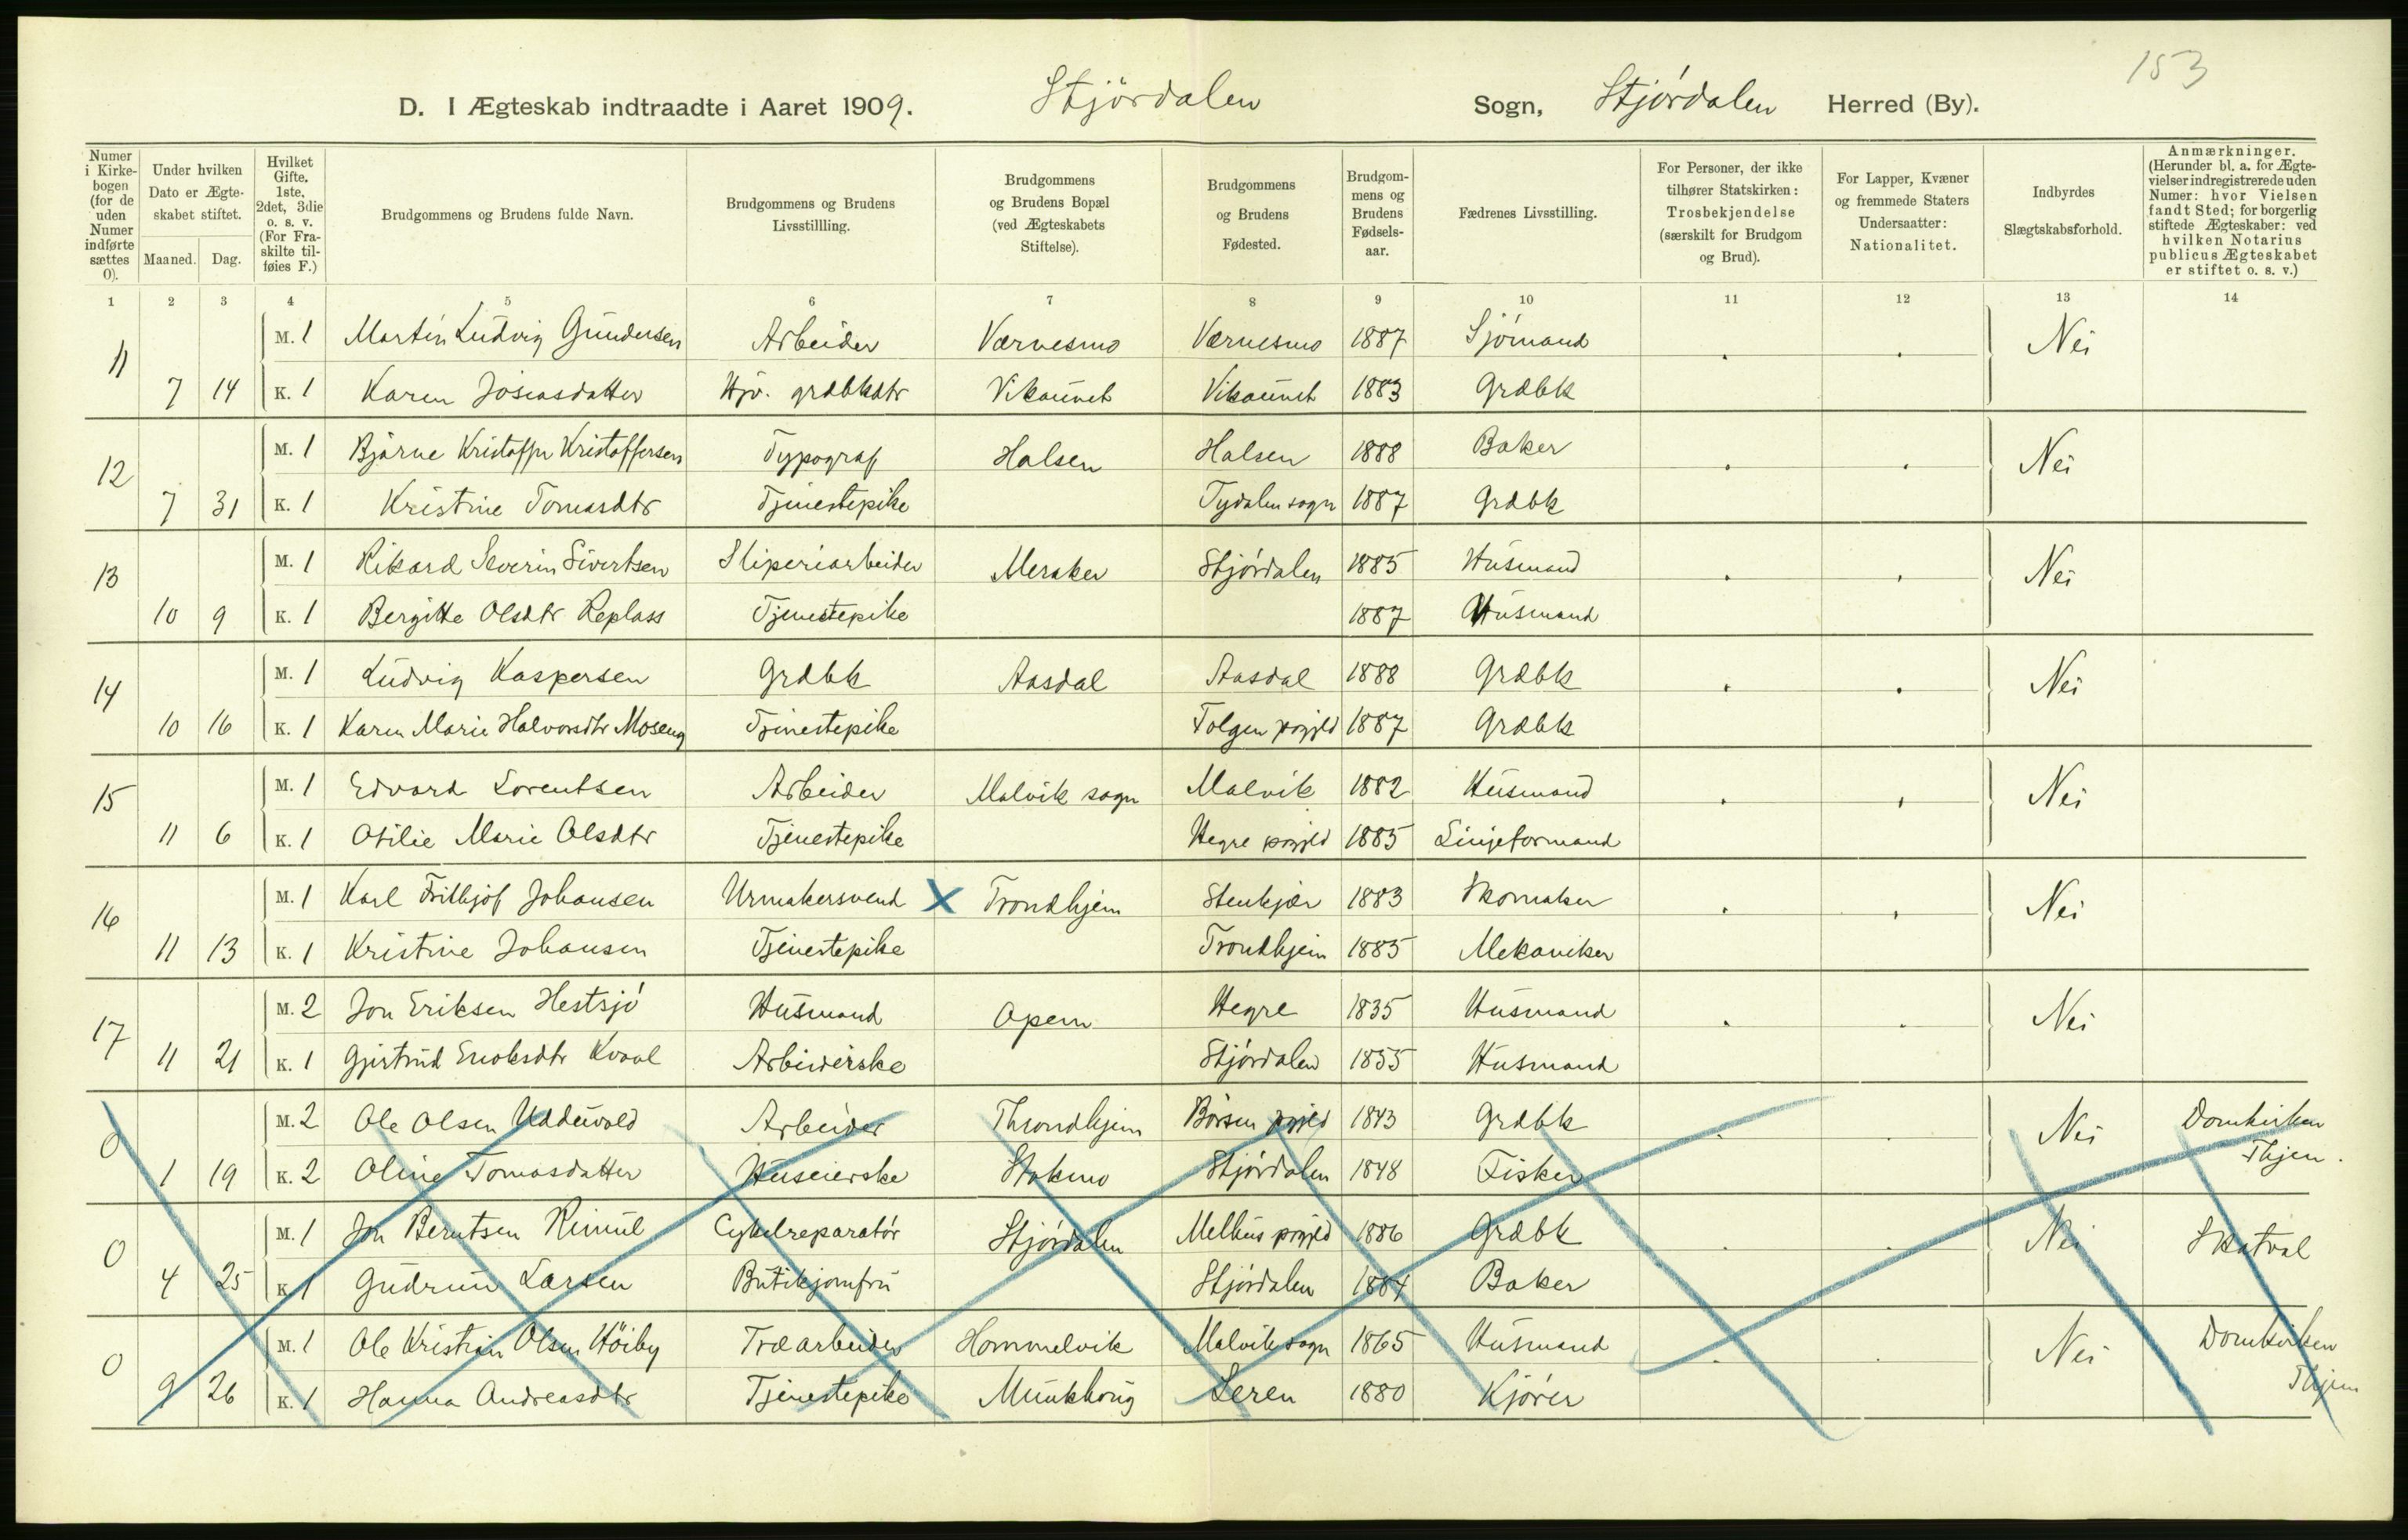 153
D. I Ægteskab indtraadte i Aaret 1909. Stjördalen Sogn, Stjördalen Herred (By).
Numer i Kirkebogen (for de uden Numer indførte sættes 0).
Under hvilken Dato er Ægteskabet stiftet.
Maaned. Dag.
Hvilket Gifte. 1ste, 2det, 3die o. s. v. (For Fraskilte tilføies F.)
Brudgommens og Brudens fulde Navn.
Brudgommens og Brudens Livsstillling.
Brudgommens og Brudens Bopæl (ved Ægteskabets Stiftelse).
Brudgommens og Brudens Fødested.
Brudgommens og Brudens Fødselsaar.
Fædrenes Livsstilling.
For Personer, der ikke tilhører Statskirken: Trosbekjendelse (særskilt for Brudgom og Brud).
For Lapper, Kvæner og fremmede Staters Undersaatter: Nationalitet.
Indbyrdes Slægtskabsforhold.
Anmærkninger. (Herunder bl. a. for Ægtevielser indregistrerede uden Numer: hvor Vielsen fandt Sted; for borgerlig stiftede Ægteskaber: ved hvilken Notarius publicus Ægteskabet er stiftet o. s. v.)
1 2 3 4 5 6 7 8 9 10 11 12 13 14
11 M. 1 Martin Ludvig Gundersen Arbeider Værnesmo Værnesmo 1887 Sjömand Nei
7 14 K. 1 Karen Josiasdatter Hjv. grdbkdtr Vikaunet Vikaunet 1883 Grdbk
12 M. 1 Bjarne Kristoffer Kristoffersen Typograf Halsen Halsen 1888 Baker Nei
7 31 K. 1 Kristine Tomasdtr Tjenestepike Tydalen sogn 1887 Grdbk
13 M. 1 Rikard Severin Sivertsen Sliperiarbeider Meraker Stjördalen 1885 Husmand Nei
10 9 K. 1 Bergitte Olsdtr Replass Tjenestepike 1887 Husmand
14 M. 1 Ludvig Kaspersen Grdbk Aasdal Aasdal 1888 Grdbk Nei
10 16 K. 1 Karen Marie Halvorsdtr Moseng Tjenestepike Tolgen prgjld 1887 Grdbk
15 M. 1 Edvard Lorentsen Arbeider Malvik sogn Malvik 1882 Husmand Nei
11 6 K. 1 Otilie Marie Olsdtr Tjenestepike Hegre prgjld 1885 Linjeformand
16 M. 1 Karl Frithjof Johansen Urmakersvend X Trondhjem Stenkjær 1883 Skomaker Nei
11 13 K. 1 Kristine Johansen Tjenestepike Trondhjem 1885 Mekaniker
17 M. 2 Jon Eriksen Hestsjö Husmand Opem Hegre 1835 Husmand Nei
11 21 K. 1 Gjertrud Enoksdtr Kvaal Arbeiderske Stjördalen 1855 Husmand
0 M. 2 Ole Olsen Uddevold Arbeider Throndhjem Börsen prgjld 1843 Grdbk Nei Domkirken
1 19 K. 2 Oline Tomasdatter Huseierske Stokmo Stjördalen 1848 Fisker Thjem.
0 M. 1 Jon Berntsen Rimul Cykelreparatör Stjördalen Melhus prgjld 1886 Grdbk Nei Skatval
4 25 K. 1 Gudrun Larsen Butikjomfru Stjördalen 1884 Baker
0 M. 1 Ole Kristian Olsen Höiby Træarbeider Hommelvik Malvik sogn 1865 Husmand Nei Domkirken
9 26 K. 1 Hanna Andreasdtr Tjenestepike Munkhaug Leren 1880 Kjörer Thjem